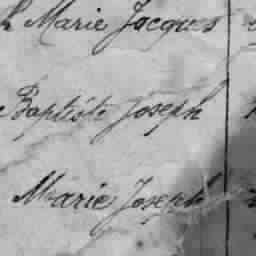 Marie Jacques
Baptiste Joseph
Marie Joseph